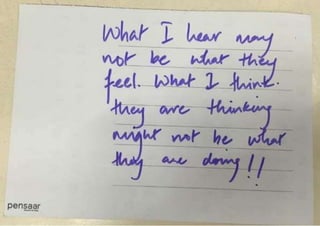 What I hear may
not be what they
feel. What I think
they are thinking
might not be what
they are doing!!
pensaar